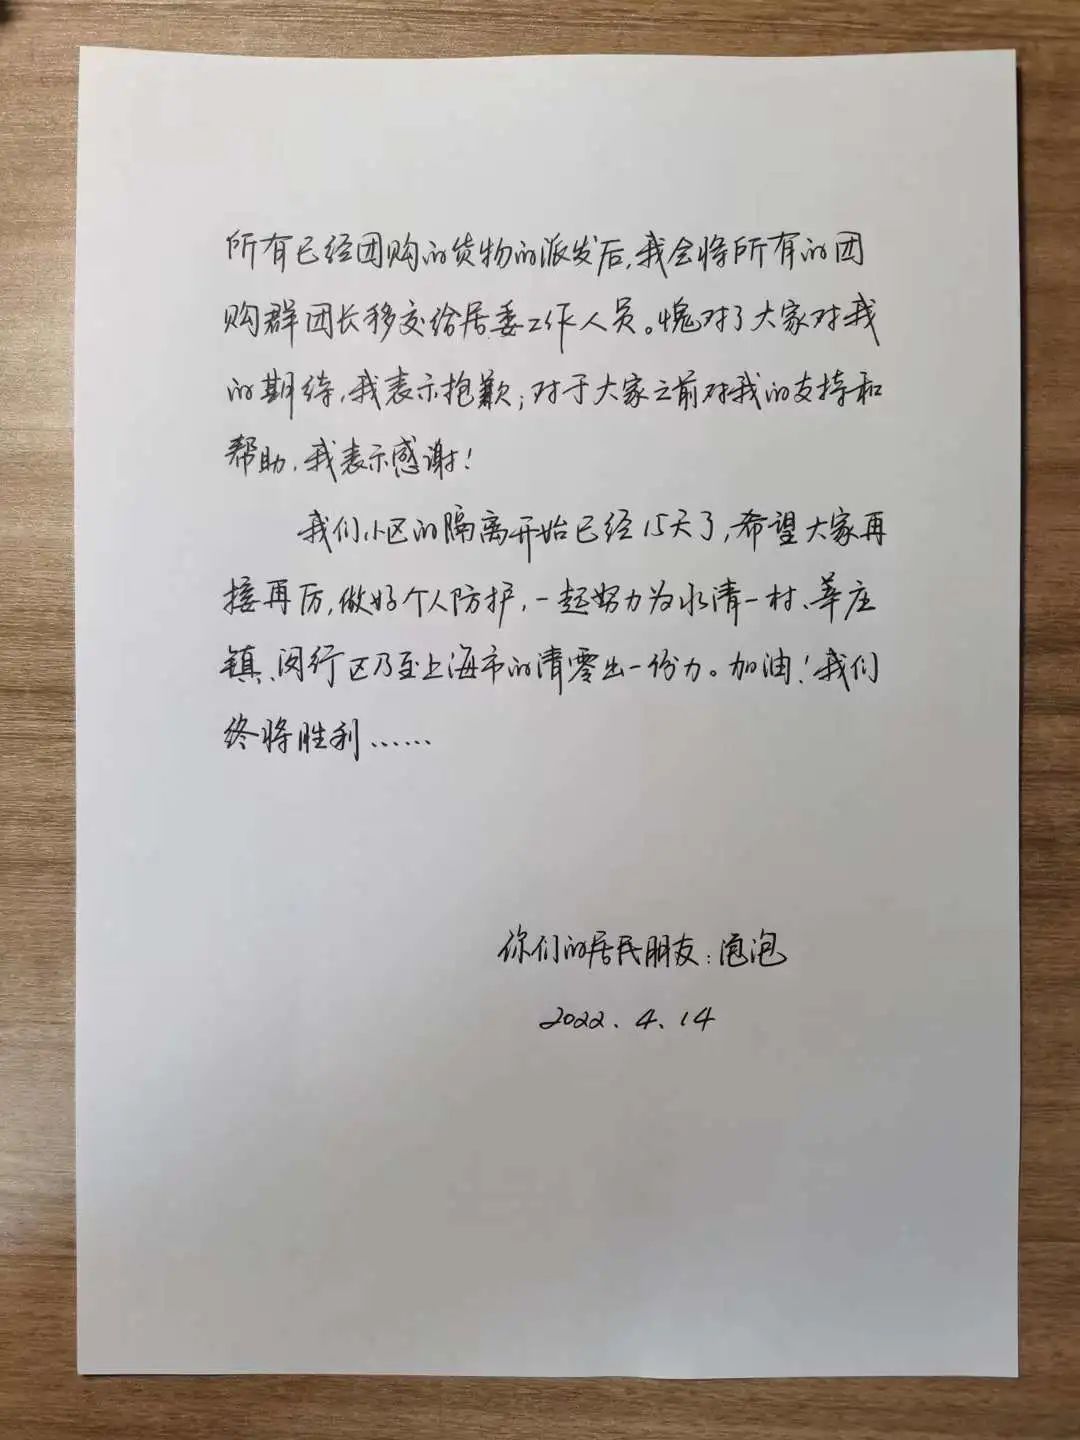 所有已经团购的货物的派发后,我会将所有的团
购群团长移交给居委工作人员。愧对了大家对我
的期待,我表示抱歉;对于大家之前对我的支持和
帮助,我表示感谢!
我们小区的隔离开始已经15天了,希望大家再
接再厉,做好个人防护,一起努力为水清一村、莘庄
镇、闵行区乃至上海市的清零出一份力。加油!我们
终将胜利……
你们的居民朋友:泡泡
2022.4.14